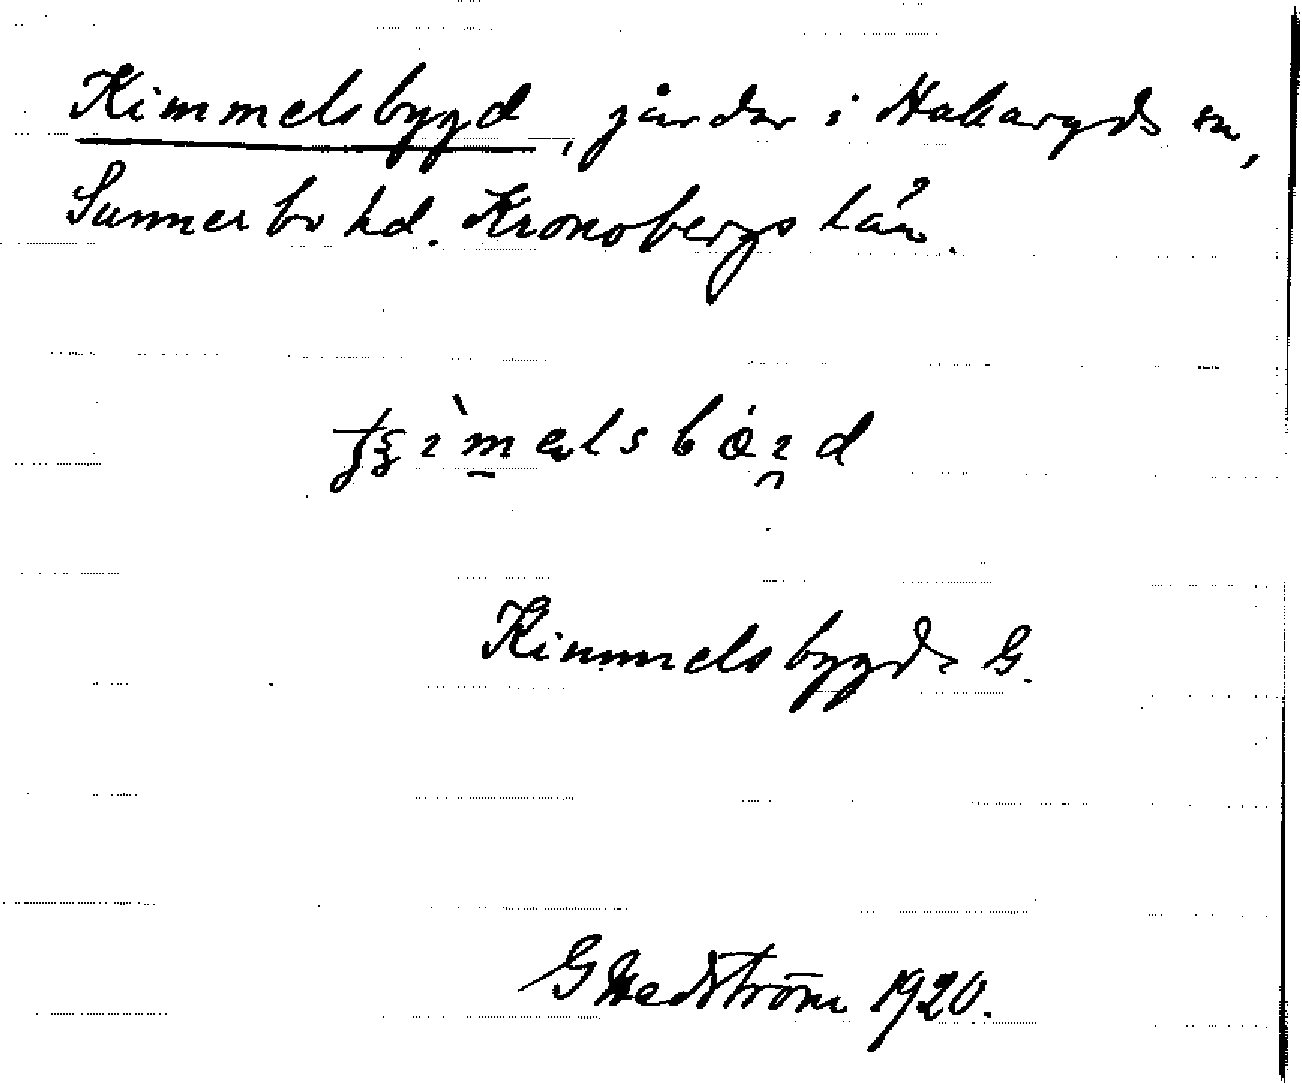 Kimmelsbygd, gårdar i Hakaryds sn,
Sunnerbo hd. Kronobergs län.
Kimmelsbygds G.
G Hedström 1920.